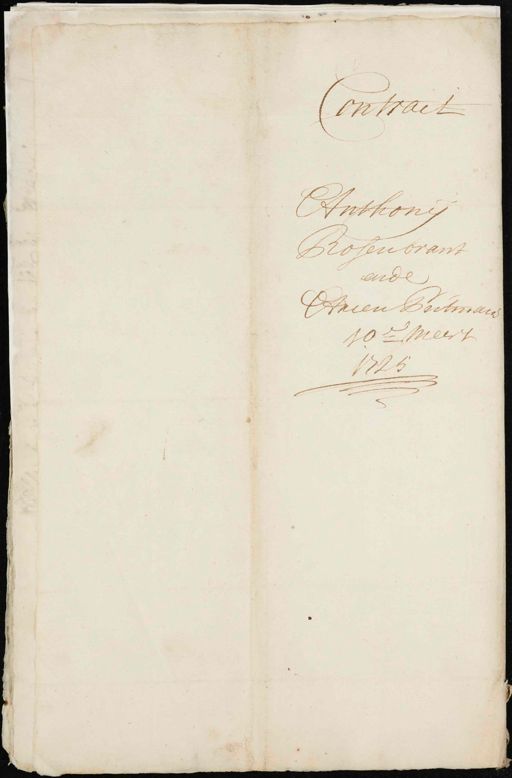 Contract
Anthonij
Rosenbrant
ende
Arien Pietman
10en Meert
1725